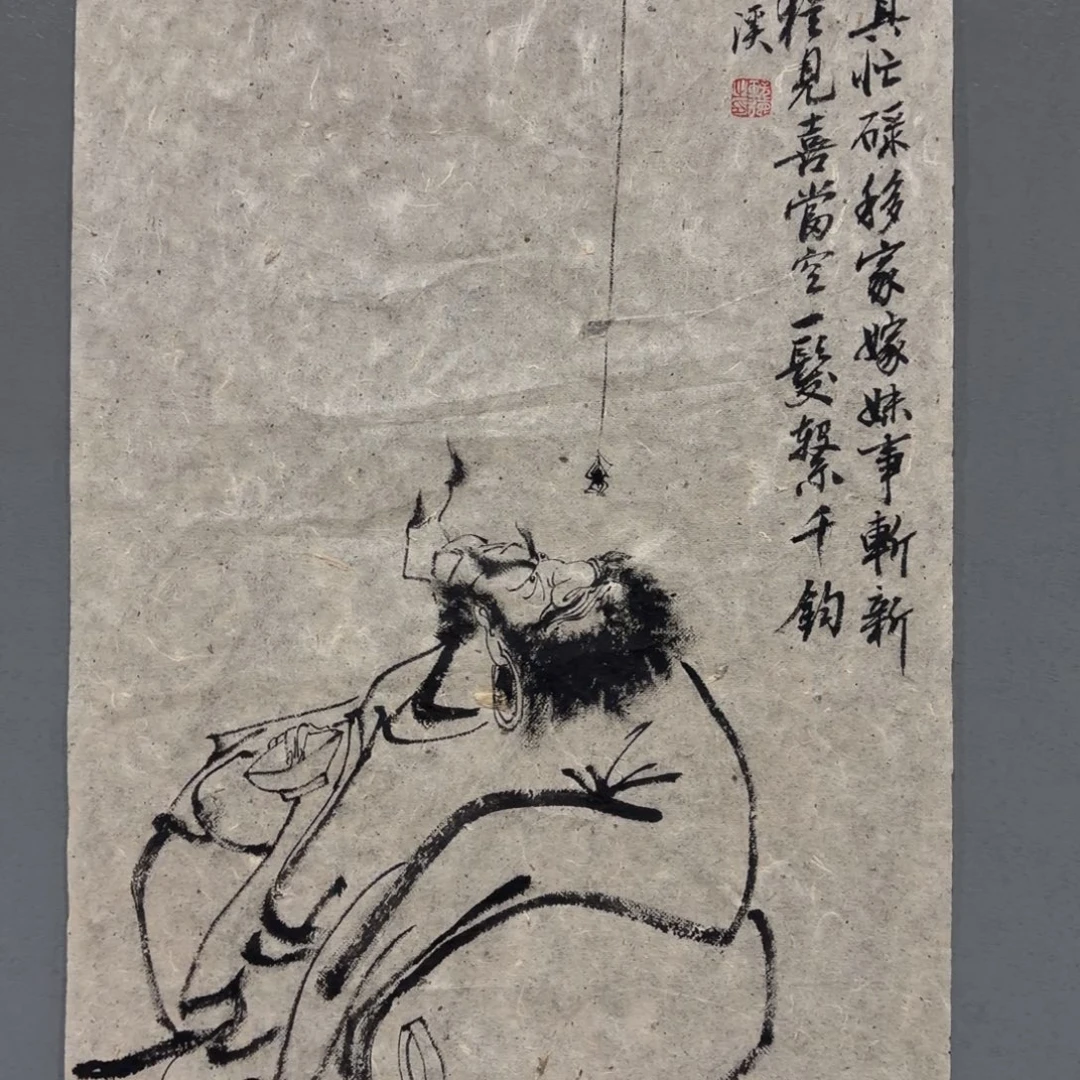 真忙碌移家嫁妹事斬新
見喜當空一髮繫千鈞
溪